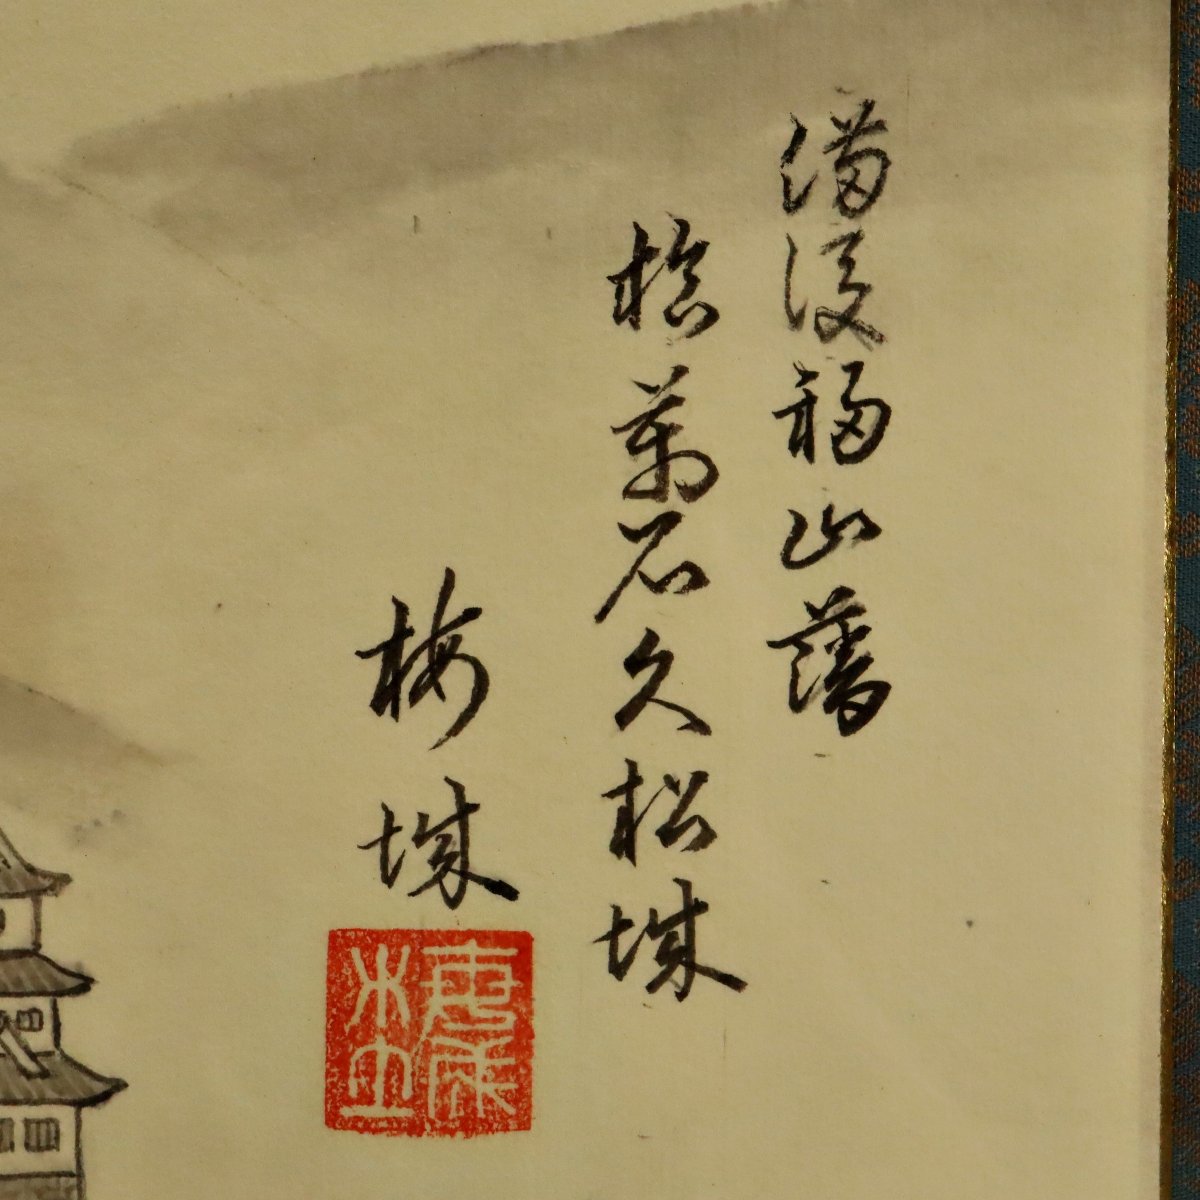 備後福山藩
拾萬石久松城
梅城